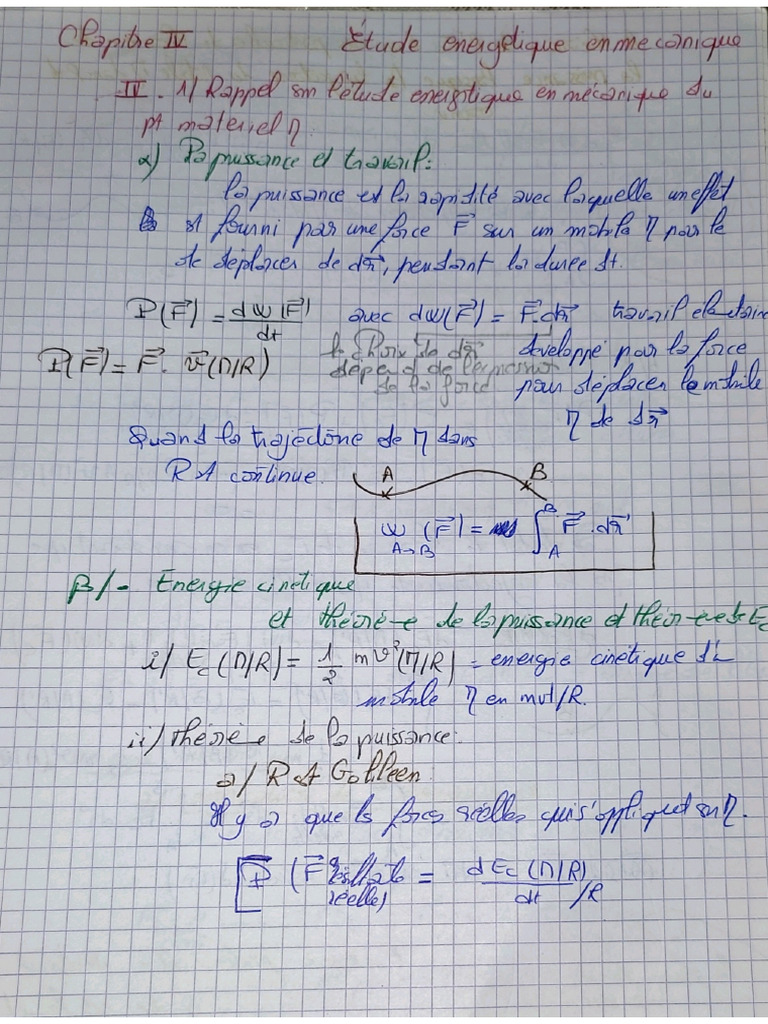 Chapitre IV Étude énergétique en mécanique
IV. 1/ Rappel sur l'étude énergétique en mécanique du
pt materiel M
α) La puissance et travail:
La puissance est la rapidité avec laquelle un effet
st fourni par une force F⃗ sur un mobile M pour le
de déplacer de dr⃗, pendant la durée dt.
P(F⃗) = dW(F⃗)/dt avec dW(F⃗) = F⃗.dr⃗ travail élémtaire
le choix de dr⃗ développé pour la force
P(F⃗) = F⃗. v⃗(M/R) dépend de l'expression
de la force pour déplacer le mobile
M de dr⃗
Quand la trajectoire de M dans
R st continue. A B
W A→B (F⃗) = ∫_A^B F⃗.dr⃗
β/- Energie cinétique
et théorè-e de la puissance et théor-e de Ec
i/ Ec(M/R) = 1/2 mv²(M/R) = energie cinétique d'
mobile M en mvt/R.
ii/ théorè-e de la puissance:
a/ R st Galiléen
Il y a que ls forces réelles qui s'appliquet sur M.
P(F⃗ réelles) = dEc(M/R)/dt /R